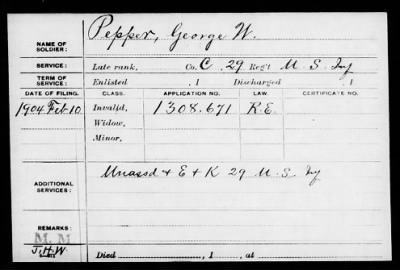 NAME OF SOLDIER: Pepper, George W.
SERVICE: Late rank, Co. C, 29 Reg't U. S. Inf
TERM OF SERVICE: Enlisted , 1 Discharged , 1
DATE OF FILING. CLASS. APPLICATION NO. LAW. CERTIFICATE NO.
1904 Feb. 10 Invalid, 1308.671 R.E.
Widow,
Minor,
ADDITIONAL SERVICES: Unassd & E & K 29 U. S. Inf
REMARKS:
M. M
J.H.W
Died , 1 , at